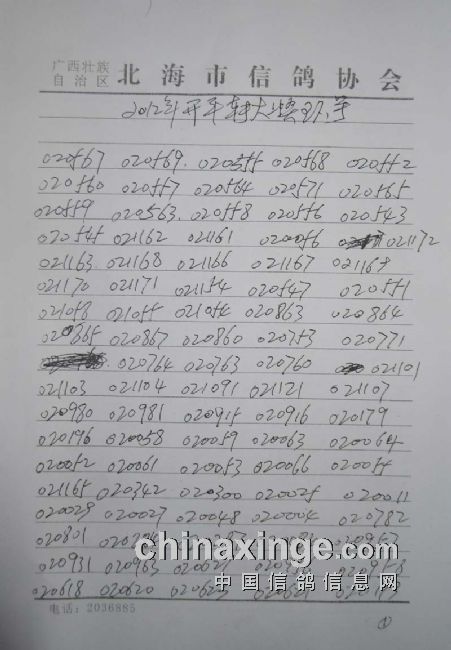 广西壮族
自治区 北海市信鸽协会
2012年开车转大奖环号
020567 020569 020555 020568 020552
020560 020557 020564 020571 020565
020559 020563 020558 020556 020543
020545 021162 021161 020056 021172
021163 021168 021166 021167 021164
021170 021171 021154 020547 020551
021058 021055 021054 020863 020864
020865 020867 020860 020753 020771
020764 020763 020760 021101
021103 021104 021091 021121 021107
020980 020981 020915 020916 020179
020196 020058 020059 020063 020064
020052 020061 020053 020066 020054
021165 020342 020300 020025 020011
020029 020027 020048 020004 020782
020801
chinaxinge.com
020931 020963 020621
中国信鸽信息网
020618 020620 020623
电话：2036885
①